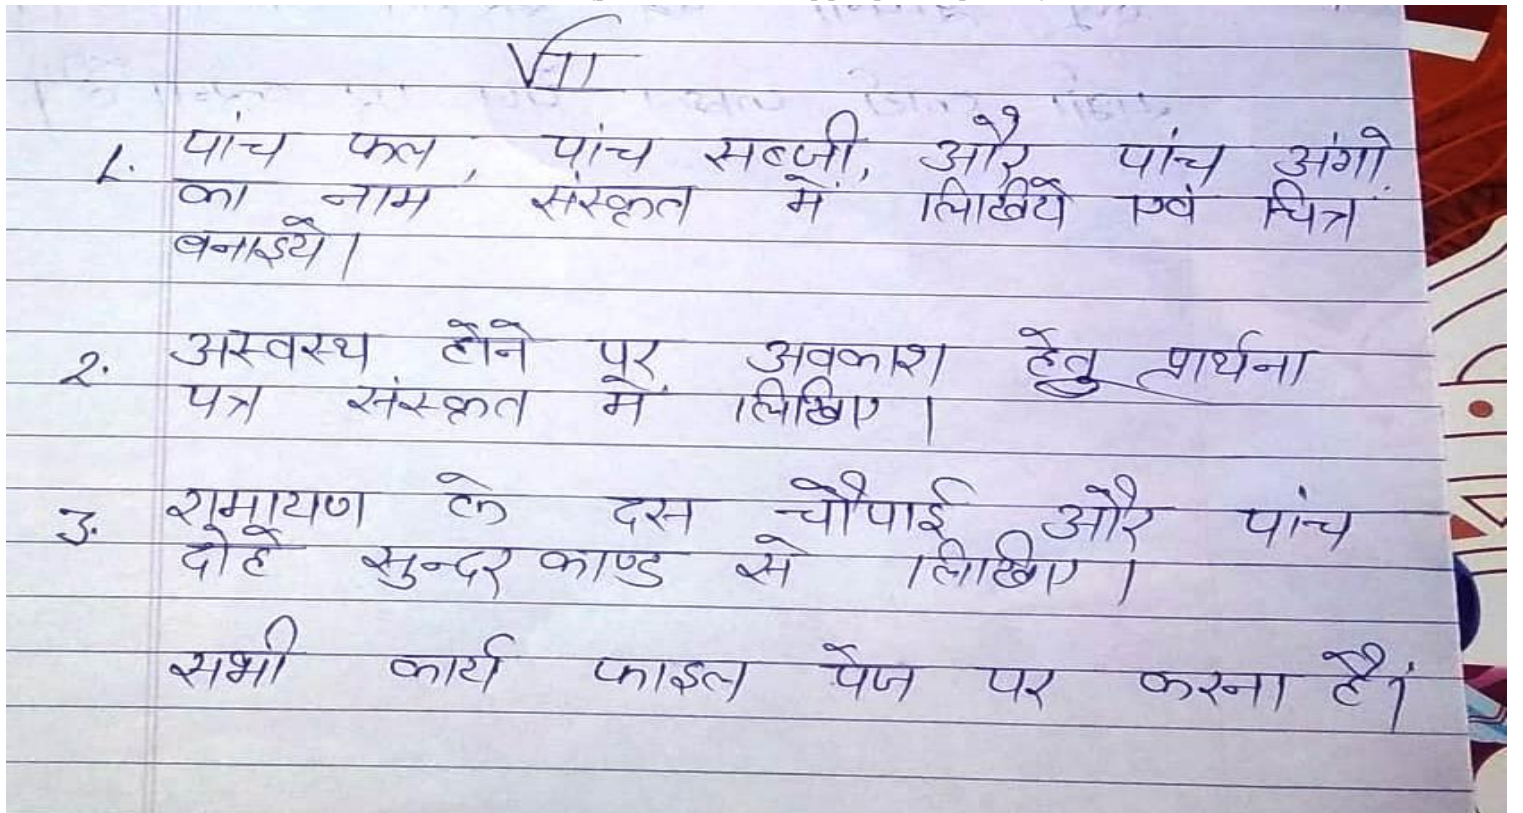 VII
1. पांच फल, पांच सब्जी, और पांच अंगो
का नाम संस्कृत में लिखिये एवं चित्र
बनाइये।
2. अस्वस्थ होने पर अवकाश हेतु प्रार्थना
पत्र संस्कृत में लिखिए।
3. रामायण के दस चौपाई और पांच
दोहे सुन्दर काण्ड से लिखिए।
सभी कार्य फाइल पेज पर करना है।